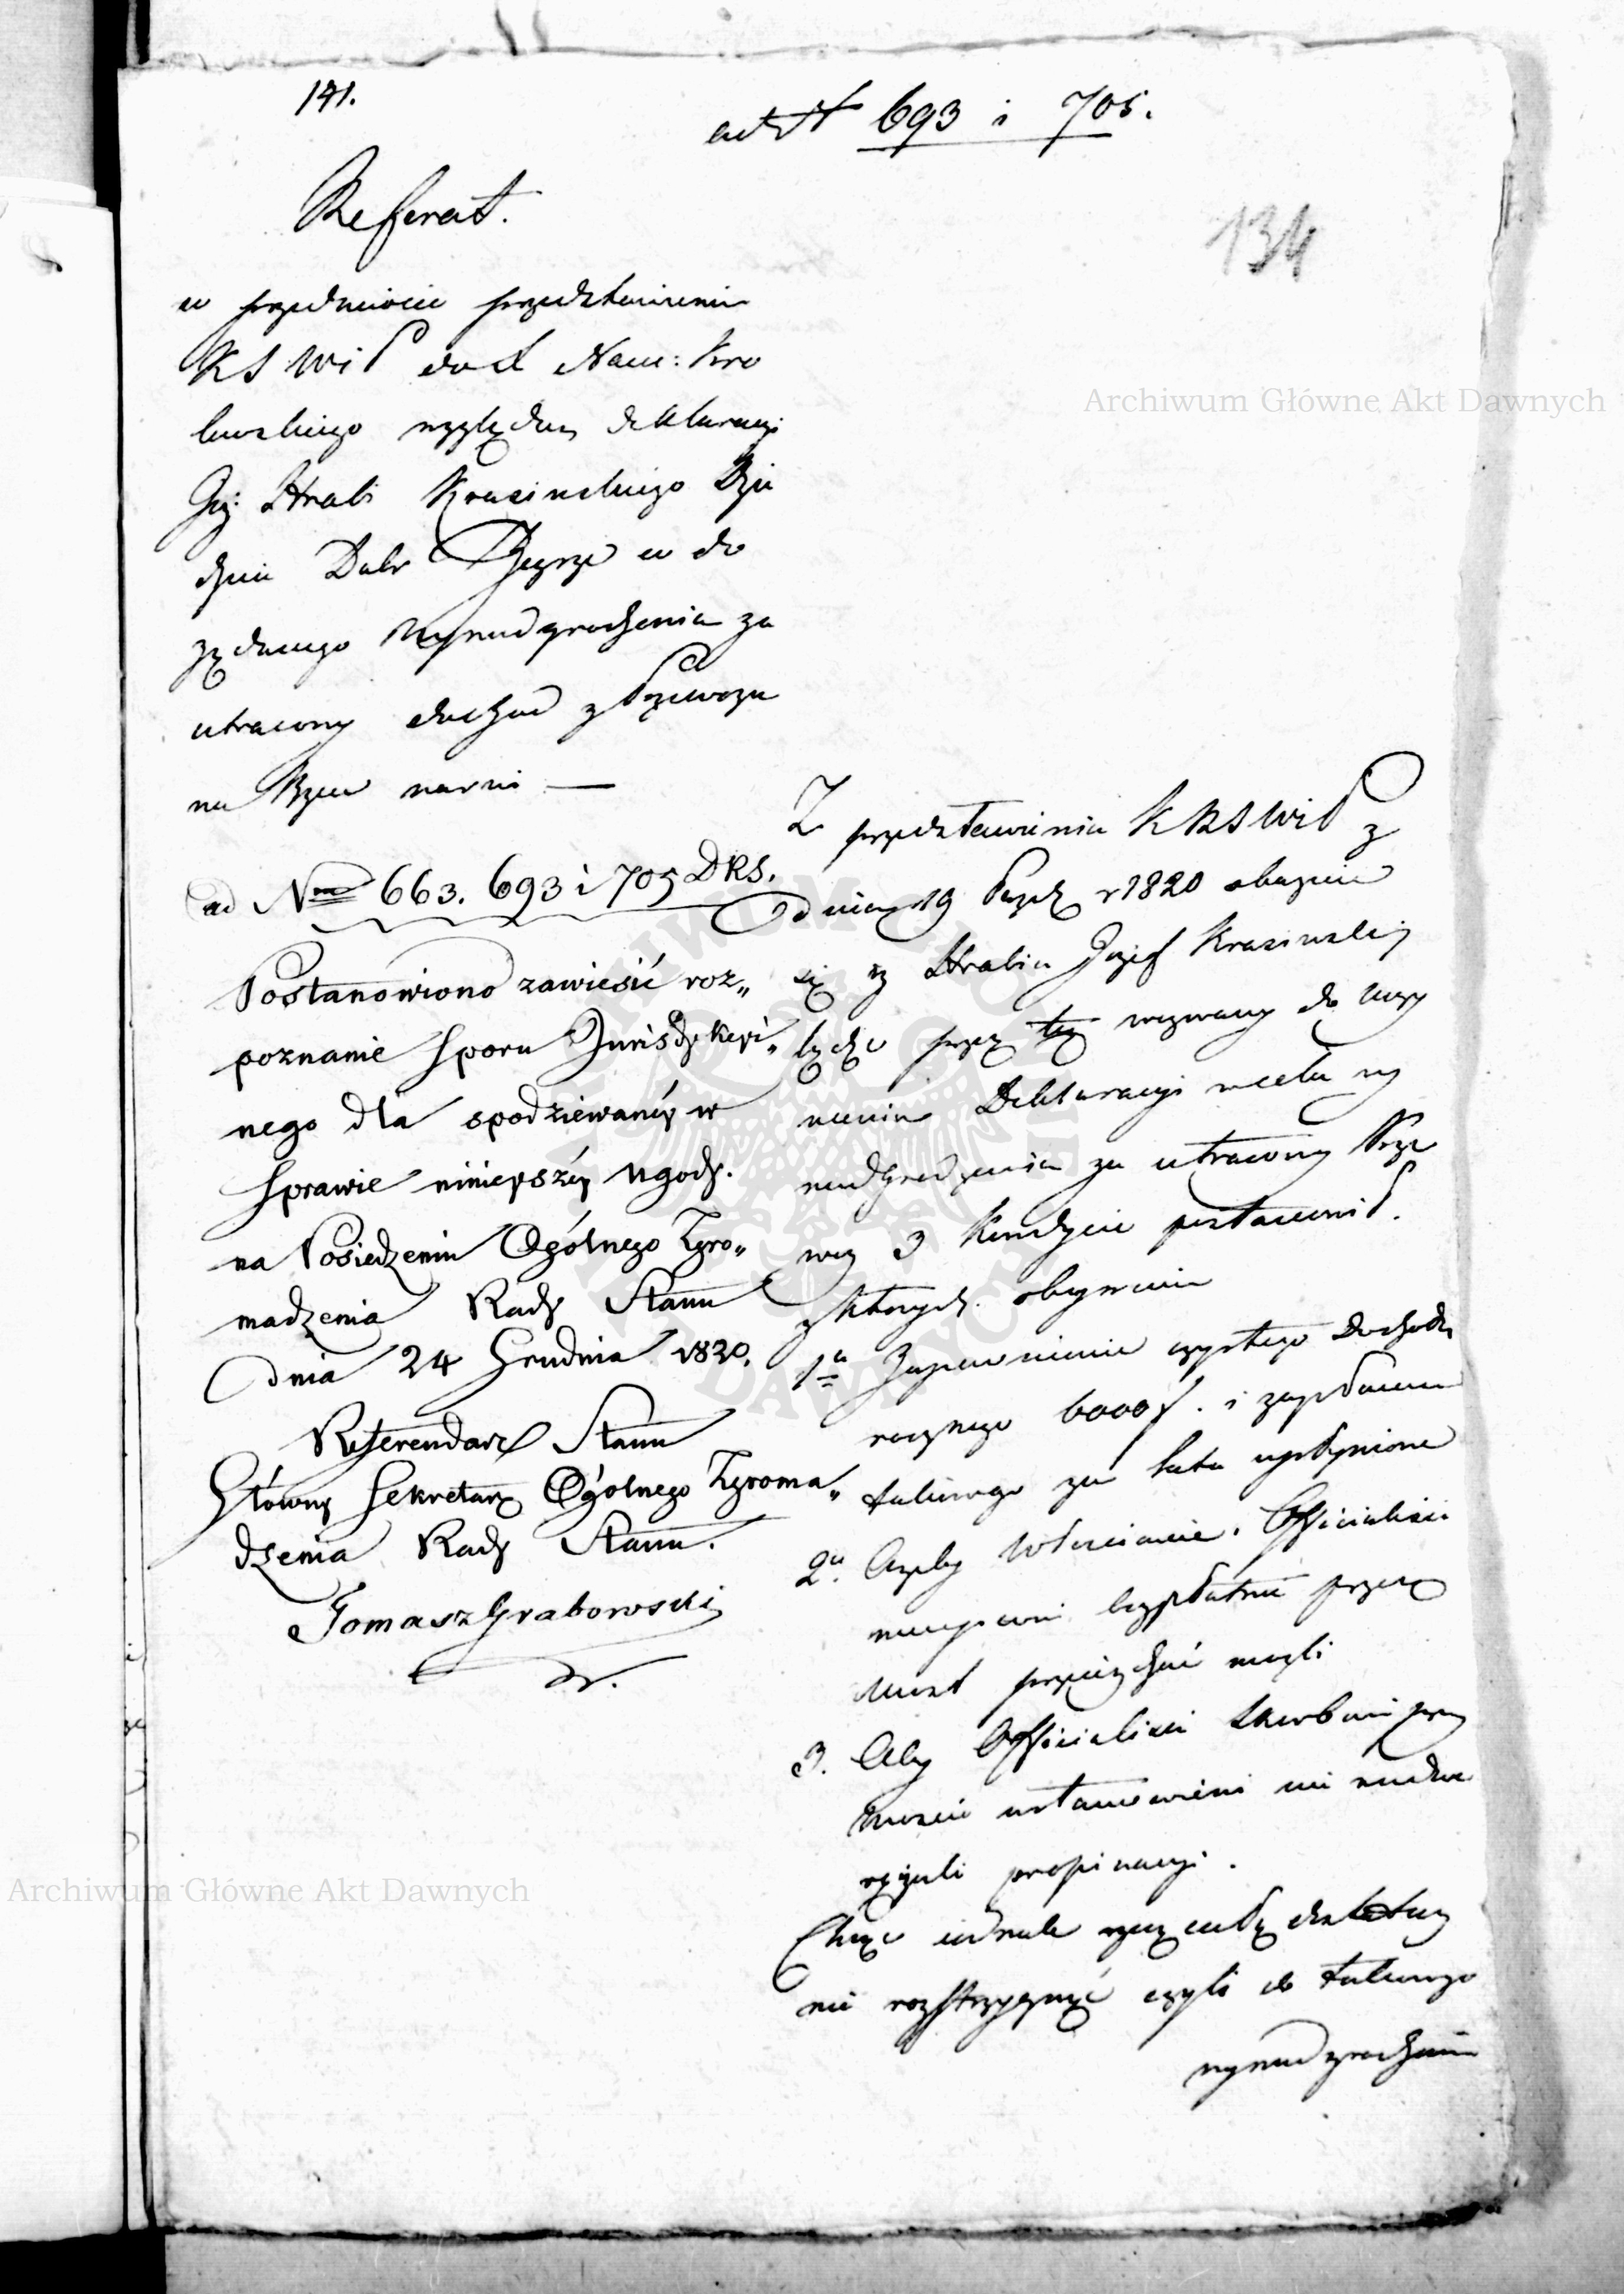 141.
ad N 693 i 705.
134
Referat.
w przedmiocie przedstawienia
KSWiP do X Nam: Kro
lewskiego względem deklaracyi
Hrabi Krasinskiego Dzie
dzica Dobr Zegrze w do
wynadgrodzenia za
utracony dochod z Przewozu
na Rzece narwi —
ad Nrm 663. 693 i 705 DRS.
Postanowiono zawiesić roz„
poznanie Sporu Jurisdykcyi„
nego dla spodziewanéy w
Sprawie ninieyszéy Ugody.
na Posiedzeniu Ogólnego Zgro„
madzenia Rady Stanu
dnia 24 Grudnia 1820.
Referendarz Stanu
Główny Sekretarz Ogólnego Zgroma„
dzenia Rady Stanu.
Tomasz Grabowski
Z przedstawienia KRSWiP z
dnia 19 Paźdz r 1820 okazuie
się iż Hrabia Jozef Krasinski
będąc przez tęż wezwany do uczy
nienia Deklaracyi w celu wy
nadgrodzenia za utracony Prze
woz 3 Kondycie postanowił.
z których obeymuie
1a Zapewnienie czystego dochodu
rocznego 6000 f. i zapłacenie
takiowego za lata upłynione
2a Ażeby Włościanie, Officialisci
bezpłatnie przez
Most przeieżdżać mogli
3. Aby Officialisci Skarbowi przy
Moscie ustanowieni nie nadwe
rężali propinacyi.
Chcąc iednak rzecz całą dokład
nie rozstrzygnąć czyli do takowego
wynadgrodzenia
Archiwum Główne Akt Dawnych
Archiwum Główne Akt Dawnych